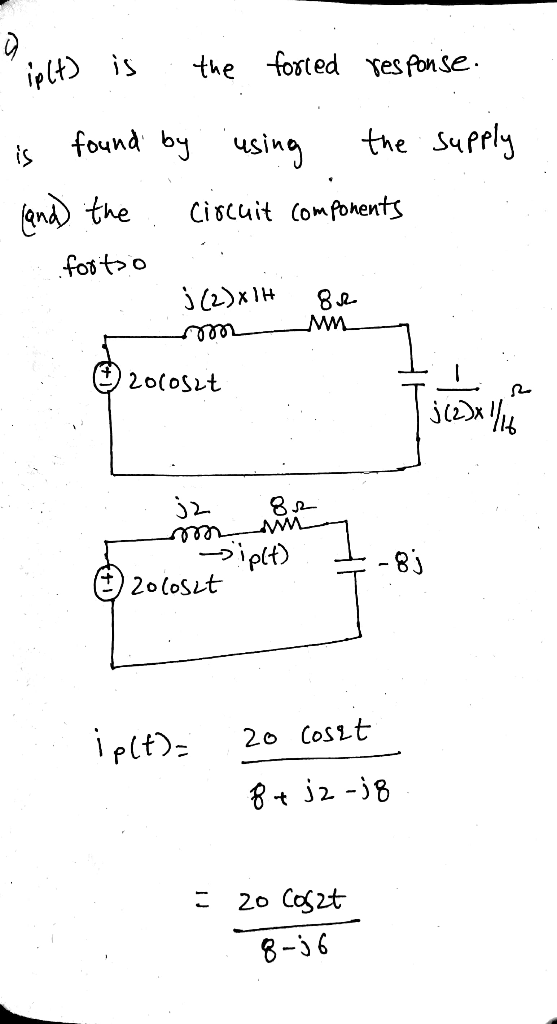 i)
ip(t) is the forced response.
is found by using the supply
(and) the circuit components
for t>0
j(2)x1H 8Ω
20cos2t
1
j(2)x1/16 Ω
j2 8Ω
→ip(t)
-8j
20cos2t
ip(t)= 20 cos2t
8+j2-j8
= 20 cos2t
8-j6